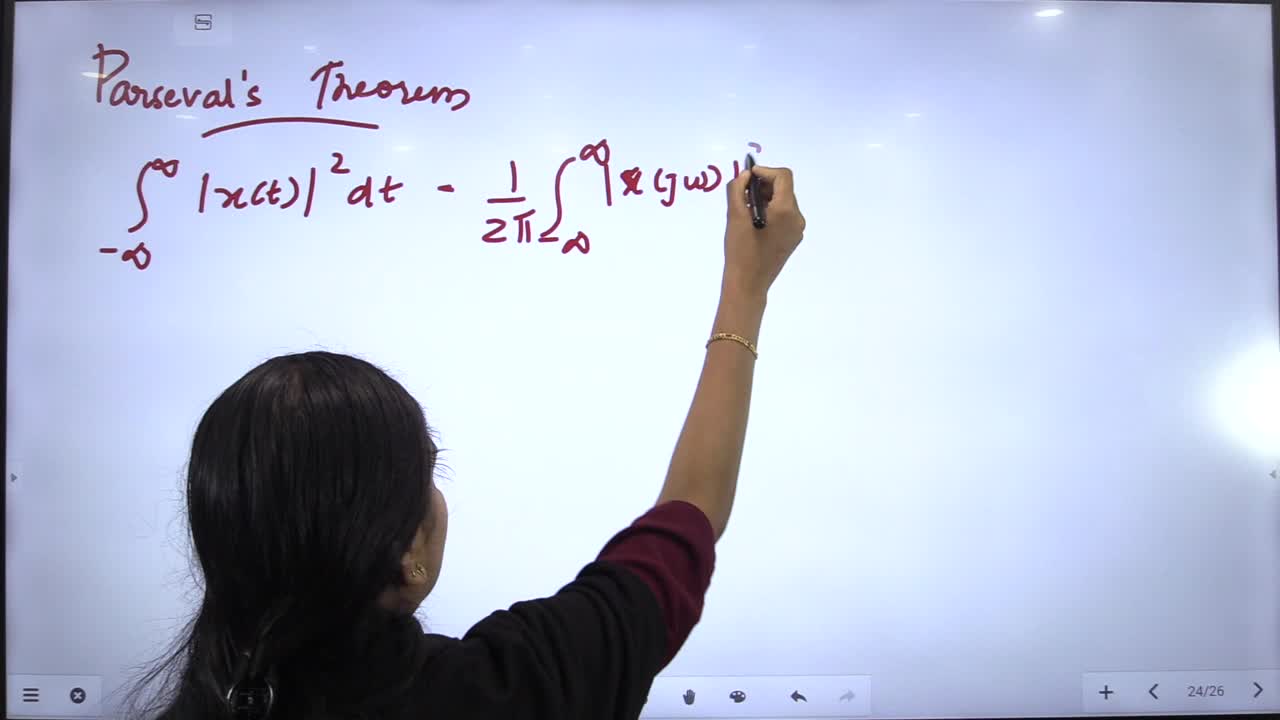 Parseval's Theorem
∫_{-∞}^{∞} |x(t)|² dt - 1/2π ∫_{-∞}^{∞} |X(jω)|
24/26